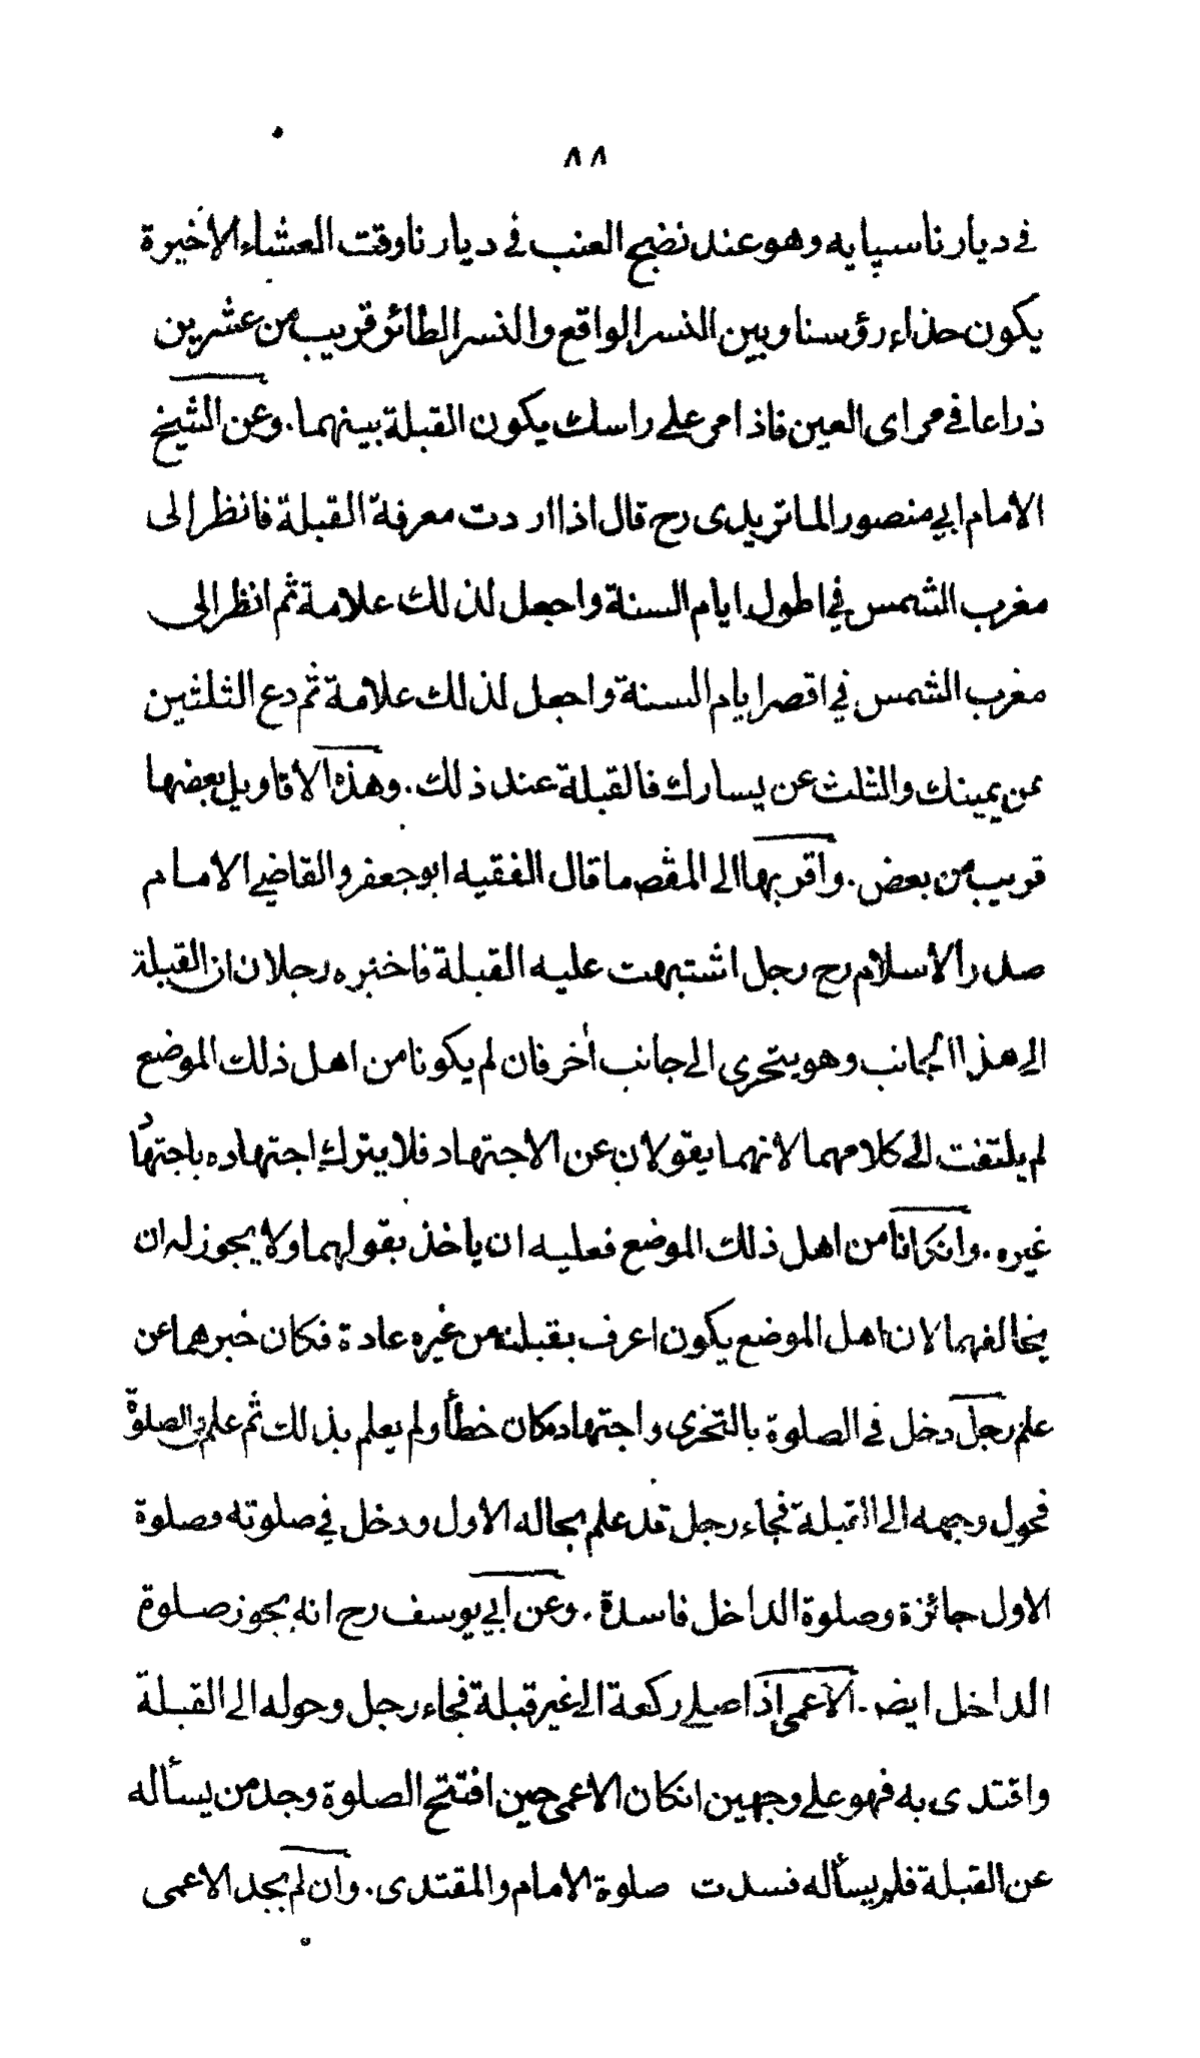 ٨٨
في ديارنا سپايه وهو عند نضج العنب في ديارنا وقت العشاء الاخيرة
يكون حذاء رؤسنا وبين النسر الواقع والنسر الطائر قريب من عشرين
ذراعا في مراى العين فاذا مر على راسك يكون القبلة بينهما. وعن الشيخ
الامام ابي منصور الماتريدى رح قال اذا اردت معرفة القبلة فانظر الى
مغرب الشمس في اطول ايام السنة واجعل لذلك علامة ثم انظر الى
مغرب الشمس في اقصر ايام السنة واجعل لذلك علامة ثم دع الثلثين
عن يمينك والثلث عن يسارك فالقبلة عند ذلك. وهذه الاقاويل بعضها
قريب من بعض. واقربها الى المقص ما قال الفقيه ابو جعفر والقاضي الامام
صدر الاسلام رح رجل اشتبهت عليه القبلة فاخبره رجلان ان القبلة
الى هذا الجانب وهو يتحرى الى جانب أخر فان لم يكونا من اهل ذلك الموضع
لم يلتفت الى كلامهما لانهما يقولان عن الاجتهاد فلا يترك اجتهاده باجتهاد
غيره. وانكانا من اهل ذلك الموضع فعليه ان ياخذ بقولهما ولا يجوز له ان
يخالفهما لان اهل الموضع يكون اعرف بقبلته من غيره عادة فكان خبرهما عن
علم رجل دخل في الصلوة بالتحرى واجتهاده كان خطأ ولم يعلم بذلك ثم علم في الصلوة
فحول وجهه الى القبلة فجاء رجل قد علم بحاله الاول ودخل في صلوته فصلوة
الاول جائزة وصلوة الداخل فاسدة. وعن ابي يوسف رح انه يجوز صلوة
الداخل ايض. الاعمى اذا صلى ركعة الى غير قبلة فجاء رجل وحوله الى القبلة
واقتدى به فهو على وجهين انكان الاعمى حين افتتح الصلوة وجد من يسأله
عن القبلة فلم يسأله فسدت صلوة الامام والمقتدى. وان لم يجد الاعمى